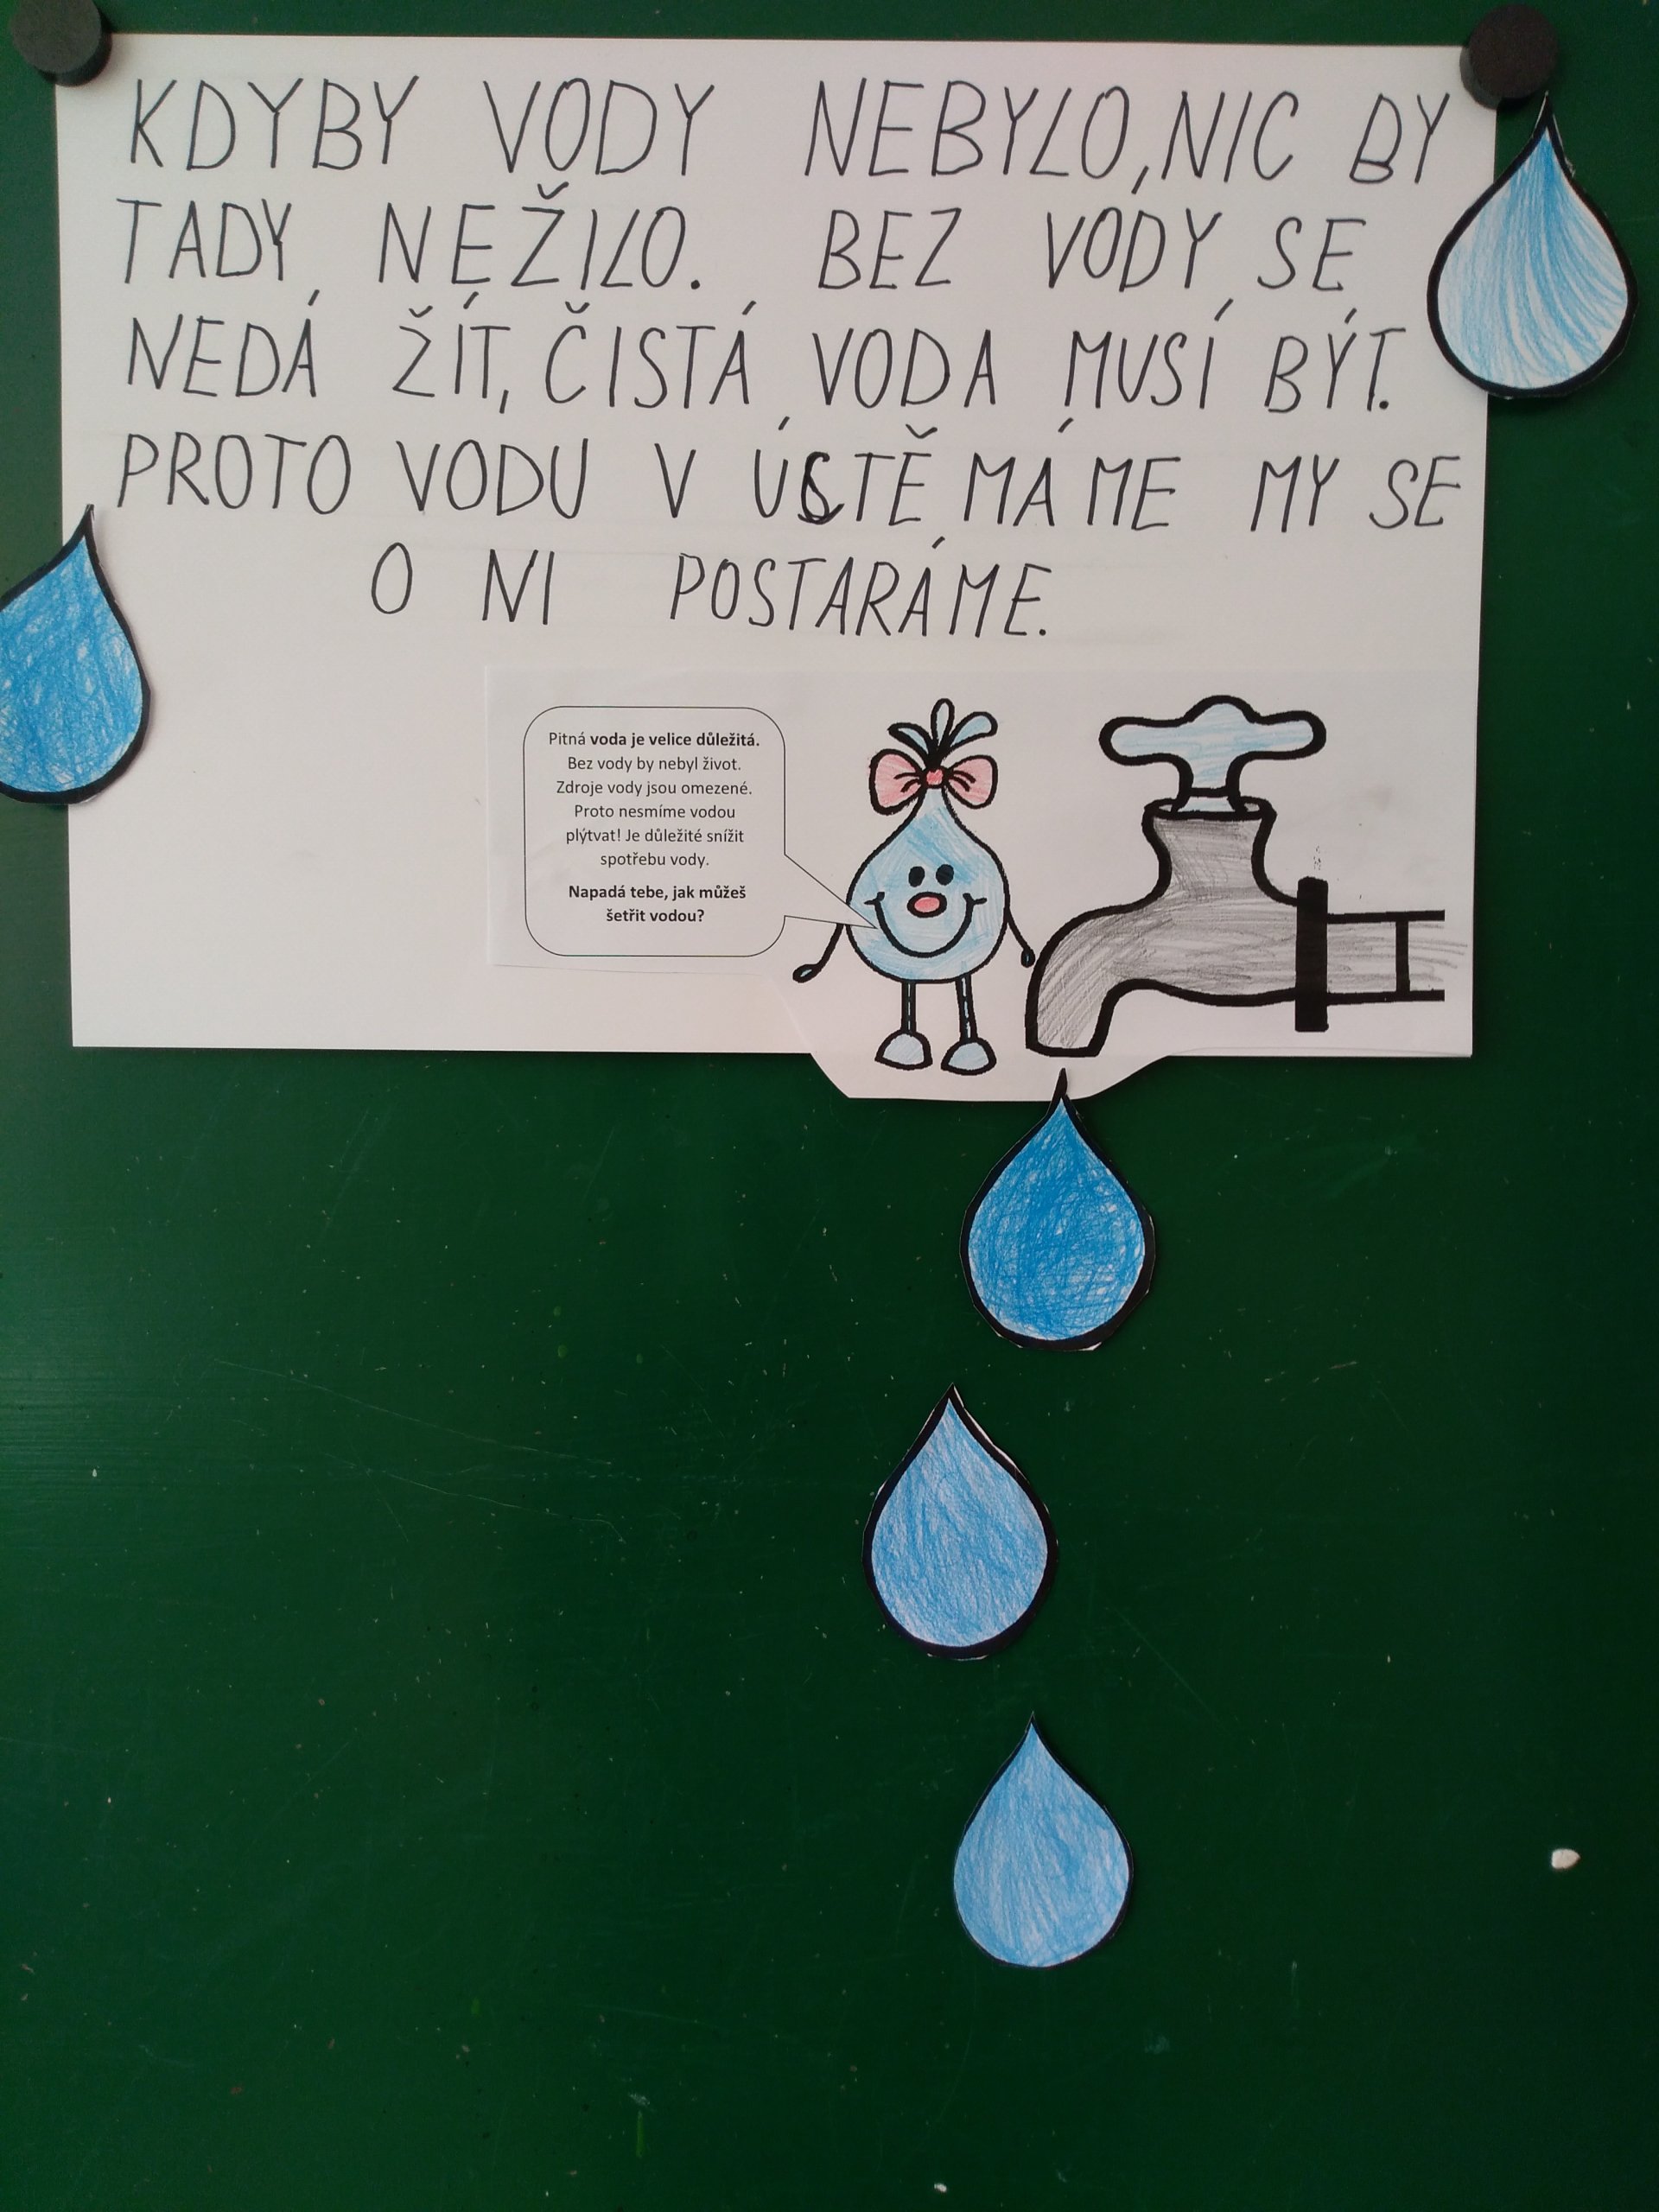 KDYBY VODY NEBYLO, NIC BY
TADY NEŽILO. BEZ VODY SE
NEDÁ ŽÍT, ČISTÁ VODA MUSÍ BÝT.
PROTO VODU V ÚSTĚ MÁME MY SE
O NI POSTARÁME.
Pitná voda je velice důležitá.
Bez vody by nebyl život.
Zdroje vody jsou omezené.
Proto nesmíme vodou
plýtvat! Je důležité snížit
spotřebu vody.
Napadá tebe, jak můžeš
šetřit vodou?